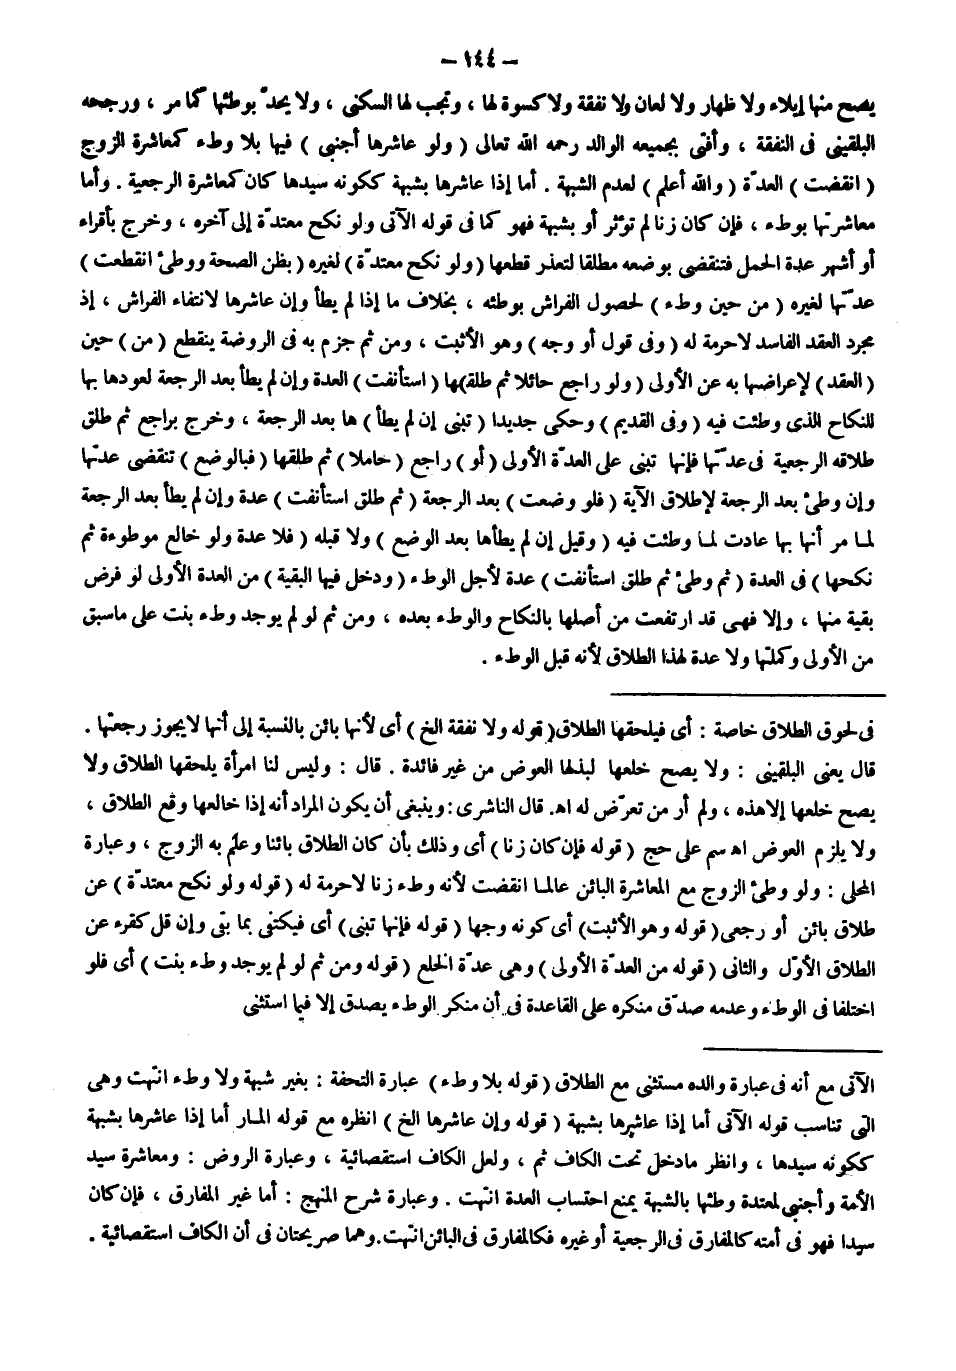 – ١٤٤ –
يصح منها إيلاء ولا ظهار ولا لعان ولا نفقة ولا كسوة لها ، وتجب لها السكنى ، ولا يحدّ بوطئها كما مر ، ورجحه
البلقينى فى النفقة ، وأفتى بجميعه الوالد رحمه الله تعالى ( ولو عاشرها أجنبى ) فيها بلا وطء كمعاشرة الزوج
( انقضت ) العدّة ( والله أعلم ) لعدم الشبهة . أما إذا عاشرها بشبهة ككونه سيدها كان كمعاشرة الرجعية . وأما
معاشرتها بوطء ، فإن كان زنا لم تؤثر أو بشبهة فهو كما فى قوله الآتى ولو نكح معتدّة إلى آخره ، وخرج بأقراء
أو أشهر عدة الحمل فتنقضى بوضعه مطلقا لتعذر قطعها ( ولو نكح معتدّة ) لغيره ( بظن الصحة ووطئ انقطعت )
عدّتها لغيره ( من حين وطء ) لحصول الفراش بوطئه ، بخلاف ما إذا لم يطأ وإن عاشرها لانتفاء الفراش ، إذ
مجرد العقد الفاسد لاحرمة له ( وفى قول أو وجه ) وهو الأثبت ، ومن ثم جزم به فى الروضة ينقطع ( من ) حين
( العقد ) لإعراضها به عن الأولى ( ولو راجع حائلا ثم طلق )ها ( استأنفت ) العدة وإن لم يطأ بعد الرجعة لعودها بها
للنكاح الذى وطئت فيه ( وفى القديم ) وحكى جديدا ( تبنى إن لم يطأ ) ها بعد الرجعة ، وخرج براجع ثم طلق
طلاقه الرجعية فى عدّتها فإنها تبنى على العدّة الأولى ( أو ) راجع ( حاملا ) ثم طلقها ( فبالوضع ) تنقضى عدتها
وإن وطئ بعد الرجعة لإطلاق الآية ( فلو وضعت ) بعد الرجعة ( ثم طلق استأنفت ) عدة وإن لم يطأ بعد الرجعة
لما مر أنها بها عادت لما وطئت فيه ( وقيل إن لم يطأها بعد الوضع ) ولا قبله ( فلا عدة ولو خالع موطوءة ثم
نكحها ) فى العدة ( ثم وطئ ثم طلق استأنفت ) عدة لأجل الوطء ( ودخل فيها البقية ) من العدة الأولى لو فرض
بقية منها ، وإلا فهى قد ارتفعت من أصلها بالنكاح والوطء بعده ، ومن ثم لو لم يوجد وطء بنت على ماسبق
من الأولى وكملتها ولا عدة لهذا الطلاق لأنه قبل الوطء .
فى لحوق الطلاق خاصة : أى فيلحقها الطلاق ( قوله ولا نفقة الخ ) أى لأنها بائن بالنسبة إلى أنها لايجوز رجعتها .
قال يعنى البلقينى : ولا يصح خلعها لبذلها العوض من غير فائدة . قال : وليس لنا امرأة يلحقها الطلاق ولا
يصح خلعها إلا هذه ، ولم أر من تعرّض له اهـ. قال الناشرى : وينبغى أن يكون المراد أنه إذا خالعها وقع الطلاق ،
ولا يلزم العوض اهـ سم على حج ( قوله فإن كان زنا ) أى وذلك بأن كان الطلاق بائنا وعلم به الزوج ، وعبارة
المحلى : ولو وطئ الزوج مع المعاشرة البائن عالما انقضت لأنه وطء زنا لاحرمة له ( قوله ولو نكح معتدّة ) عن
طلاق بائن أو رجعى ( قوله وهو الأثبت ) أى كونه وجها ( قوله فإنها تبنى ) أى فيكتفى بما بقى وإن قل كقرء عن
الطلاق الأوّل والثانى ( قوله من العدّة الأولى ) وهى عدّة الخلع ( قوله ومن ثم لو لم يوجد وطء بنت ) أى فلو
اختلفا فى الوطء وعدمه صدّق منكره على القاعدة فى أن منكر الوطء يصدق إلا فيما استثنى
الآتى مع أنه فى عبارة والده مستثنى مع الطلاق ( قوله بلا وطء ) عبارة التحفة : بغير شبهة ولا وطء انتهت وهى
التى تناسب قوله الآتى أما إذا عاشرها بشبهة ( قوله وإن عاشرها الخ ) انظره مع قوله المار أما إذا عاشرها بشبهة
ككونه سيدها ، وانظر مادخل تحت الكاف ثم ، ولعل الكاف استقصائية ، وعبارة الروض : ومعاشرة سيد
الأمة وأجنبى لمعتدة وطئها بالشبهة يمنع احتساب العدة انتهت . وعبارة شرح المنهج : أما غير المفارق ، فإن كان
سيدا فهو فى أمته كالمفارق فى الرجعية أو غيره فكالمفارق فى البائن انتهت. وهما صريحتان فى أن الكاف استقصائية .